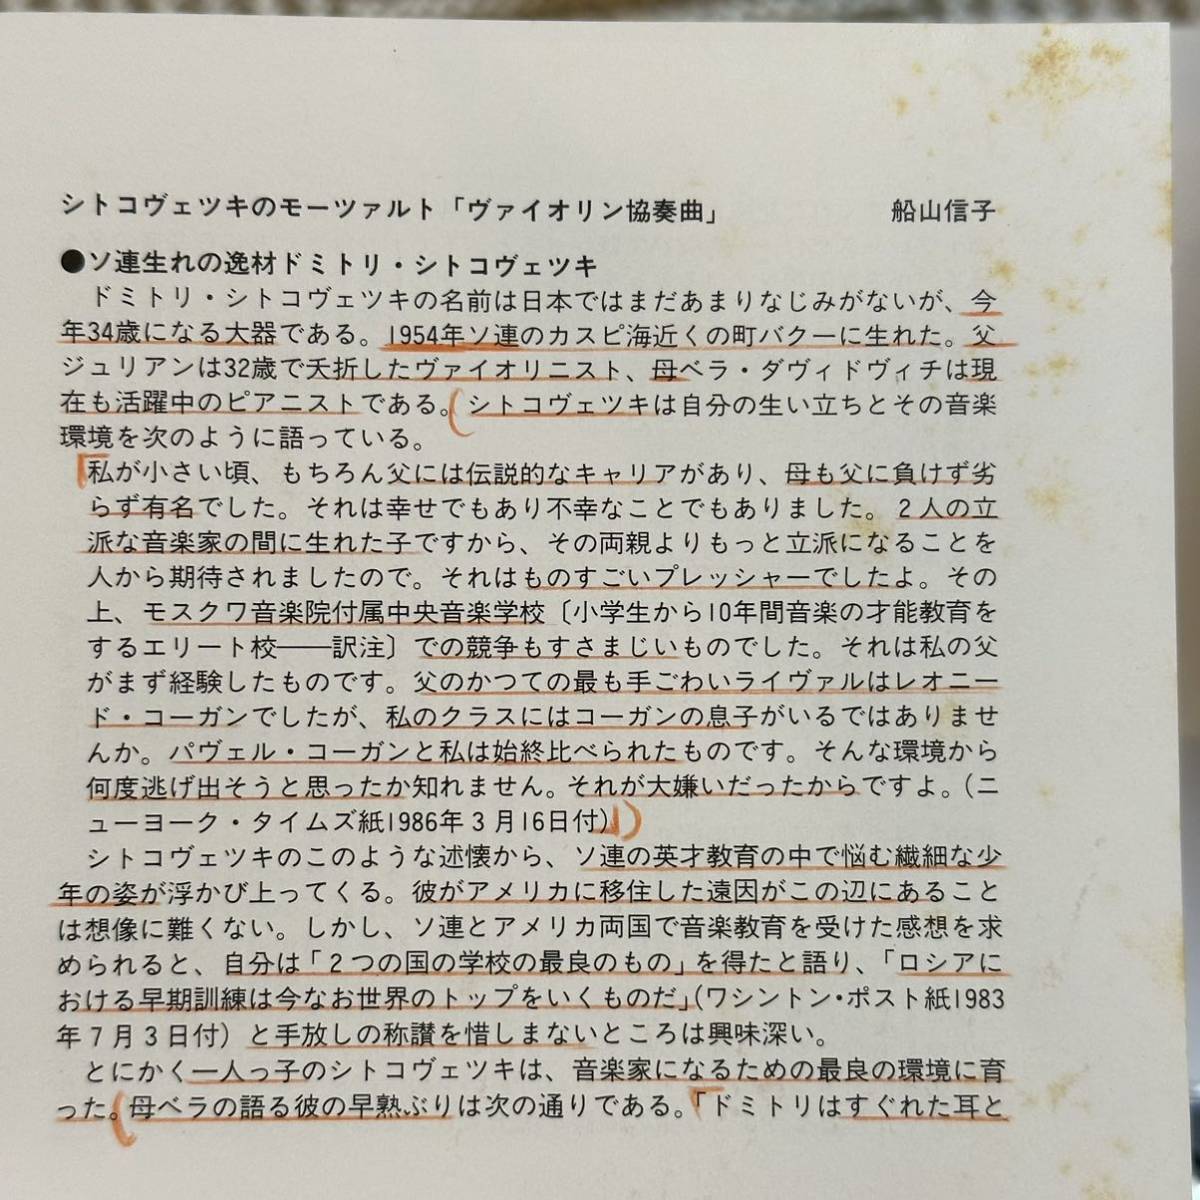 シトコヴェツキのモーツァルト「ヴァイオリン協奏曲」　船山信子
●ソ連生れの逸材ドミトリ・シトコヴェツキ
ドミトリ・シトコヴェツキの名前は日本ではまだあまりなじみがないが、今
年34歳になる大器である。1954年ソ連のカスピ海近くの町バクーに生れた。父
ジュリアンは32歳で夭折したヴァイオリニスト、母ベラ・ダヴィドヴィチは現
在も活躍中のピアニストである。シトコヴェツキは自分の生い立ちとその音楽
環境を次のように語っている。
「私が小さい頃、もちろん父には伝説的なキャリアがあり、母も父に負けず劣
らず有名でした。それは幸せでもあり不幸なことでもありました。2人の立
派な音楽家の間に生れた子ですから、その両親よりもっと立派になることを
人から期待されましたので。それはものすごいプレッシャーでしたよ。その
上、モスクワ音楽院付属中央音楽学校〔小学生から10年間音楽の才能教育を
するエリート校――訳注〕での競争もすさまじいものでした。それは私の父
がまず経験したものです。父のかつての最も手ごわいライヴァルはレオニー
ド・コーガンでしたが、私のクラスにはコーガンの息子がいるではありませ
んか。パヴェル・コーガンと私は始終比べられたものです。そんな環境から
何度逃げ出そうと思ったか知れません。それが大嫌いだったからですよ。（ニ
ューヨーク・タイムズ紙1986年3月16日付）」
シトコヴェツキのこのような述懐から、ソ連の英才教育の中で悩む繊細な少
年の姿が浮かび上ってくる。彼がアメリカに移住した遠因がこの辺にあること
は想像に難くない。しかし、ソ連とアメリカ両国で音楽教育を受けた感想を求
められると、自分は「2つの国の学校の最良のもの」を得たと語り、「ロシアに
おける早期訓練は今なお世界のトップをいくものだ」（ワシントン・ポスト紙1983
年7月3日付）と手放しの称讃を惜しまないところは興味深い。
とにかく一人っ子のシトコヴェツキは、音楽家になるための最良の環境に育
った。母ベラの語る彼の早熟ぶりは次の通りである。「ドミトリはすぐれた耳と